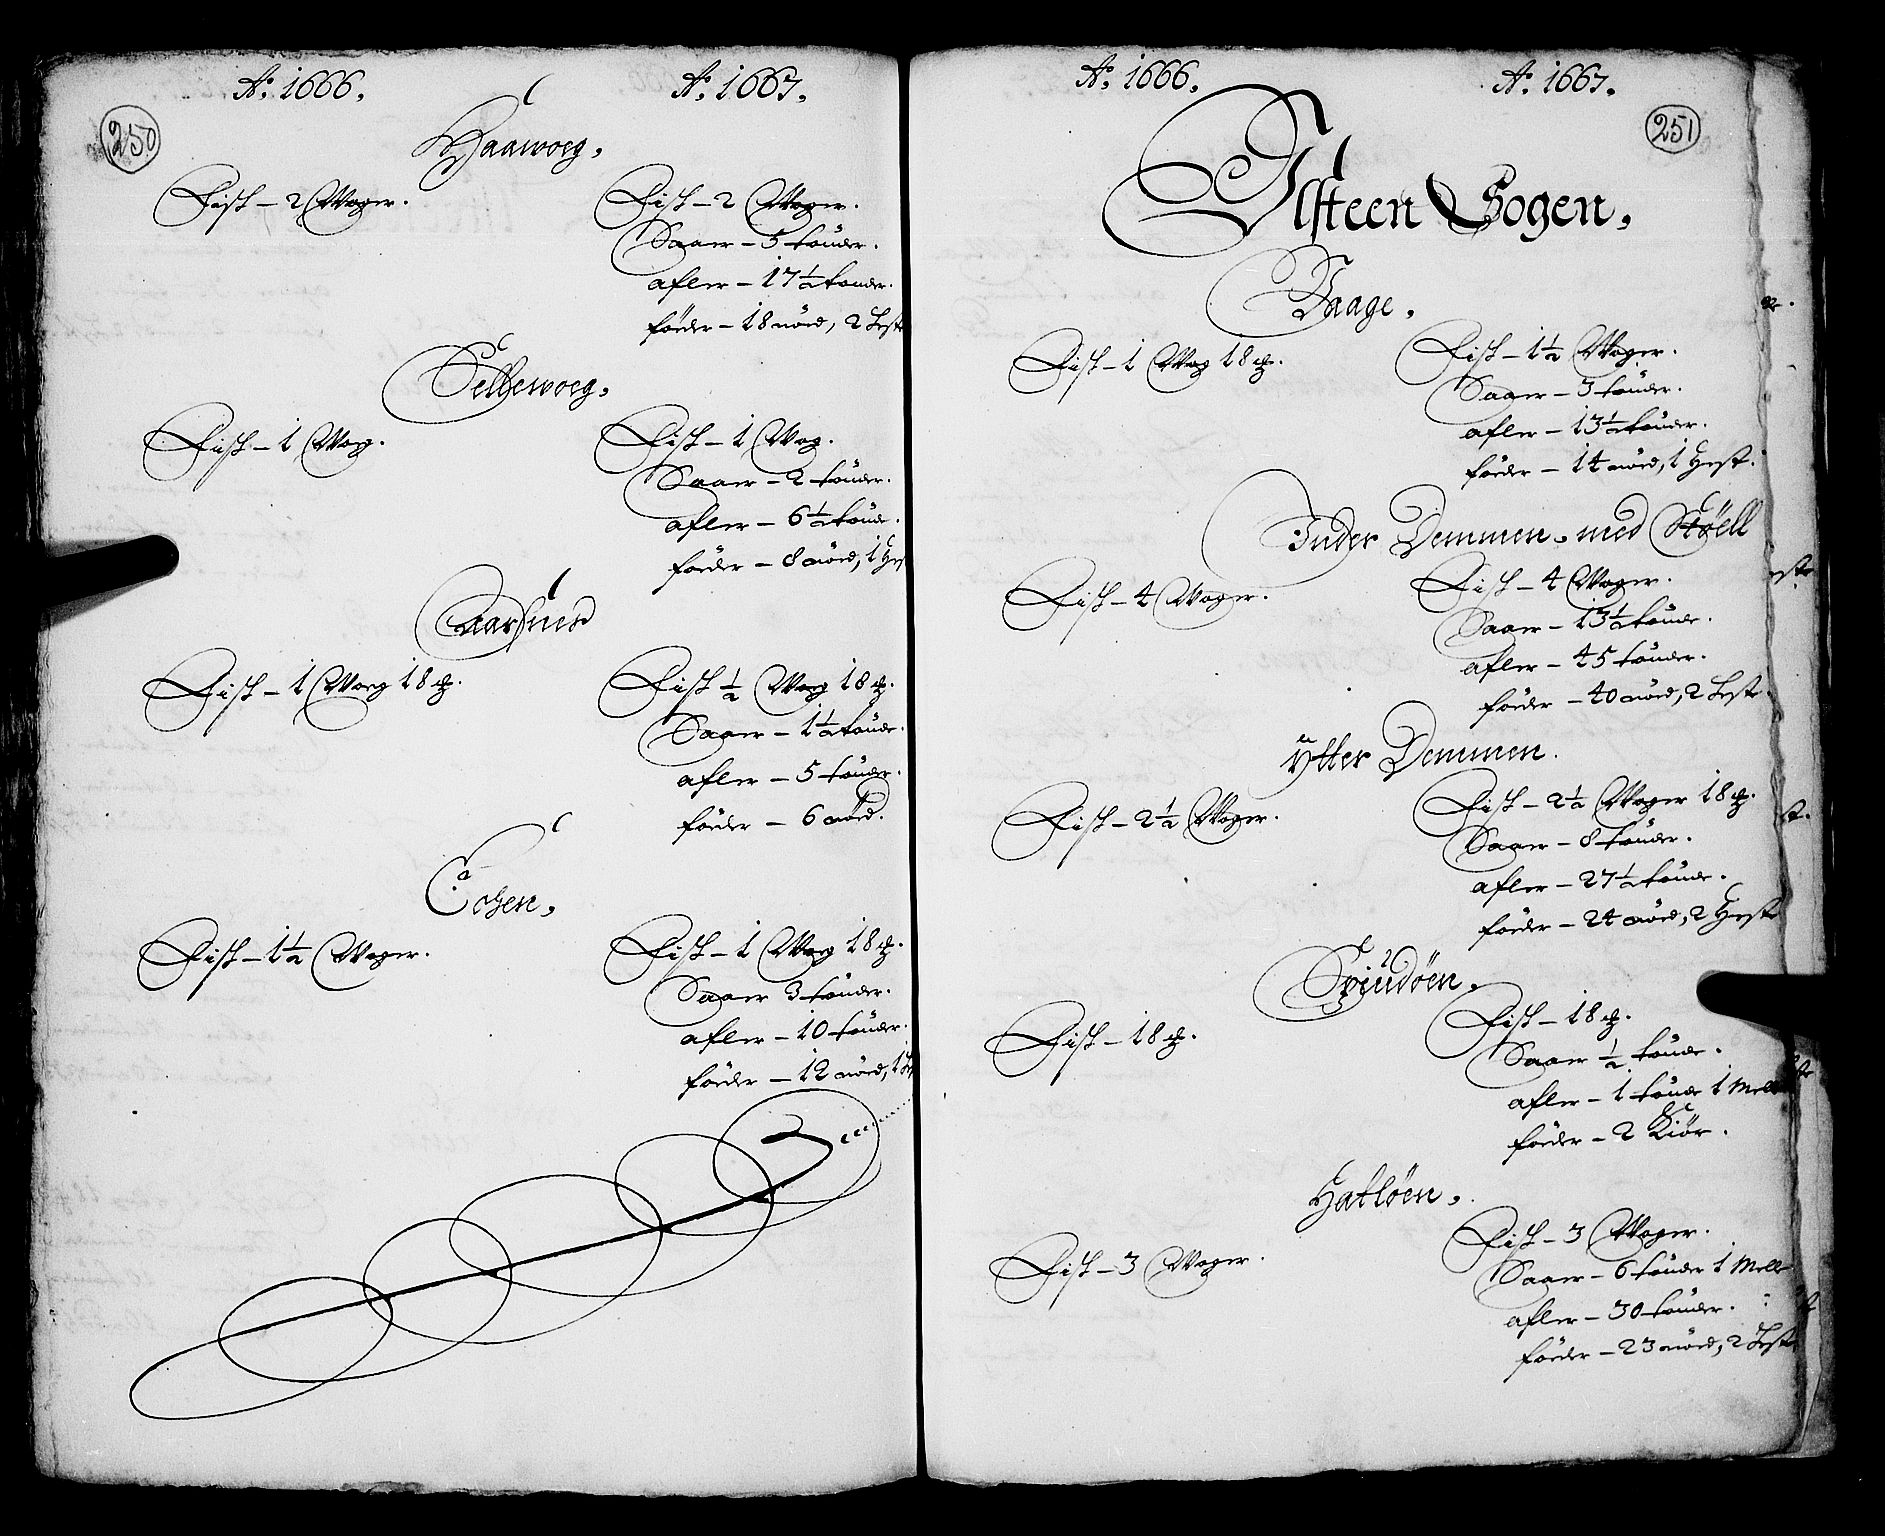 250
Aº. 1666.
Aº. 1667.
Haawoeg,
Fisk – 2 Woger.
Fisk – 2 Woger.
Saaer – 5 tønder.
afler – 17½ tønder.
føeder – 18 nød, 2 Heste
Selbewoeg,
Fisk – 1 Wog.
Fisk – 1 Wog.
Saaer – 2 tønder.
afler – 6½ tønde.
føeder – 8 nød, 1 Hest
Aarsnes
Fisk – 1 Woeg 18 ℔.
Fisk ½ Woeg 18 ℔.
Saaer – 1½ tønde.
afler – 5 tønder.
føeder – 6 nød.
Fisk – 1½ Woger.
Fisk – 1 Woeg 18 ℔.
Saaer 3 tønder.
afler – 10 tønder.
føeder – 12 nød, 1
251
Aº. 1666.
Aº. 1667.
Ulsteen Sogen.
Haage.
Fisk – 1 Wog 18 ℔.
Fisk – 1½ Woger.
Saaer – 3 tønder.
afler – 13½ tønder.
føeder – 14 nød, 1 Hest.
Inder Demmen, med Støell
Fisk – 4 Woger.
Fisk – 4 Woger.
Saaer – 13½ tønde.
afler – 45 tønder.
føeder – 40 nød, 2 Heste
Ytter Demmen.
Fisk – 2½ Woger.
Fisk – 2½ Woger 18 ℔.
Saaer – 8 tønder.
afler – 27½ tønde.
føeder – 24 nød, 2 Heste
Sviudøen,
Fisk – 18 ℔.
Fisk – 18 ℔.
Saaer ½ tønde.
afler – 1 tønde 1 Mele
føeder – 2 Kiør.
Hatløen,
Fisk – 3 Woger.
Fisk – 3 Woger.
Saaer – 6 tønder 1 Mele
afler – 30 tønder.
føeder – 23 nød, 2 Heste